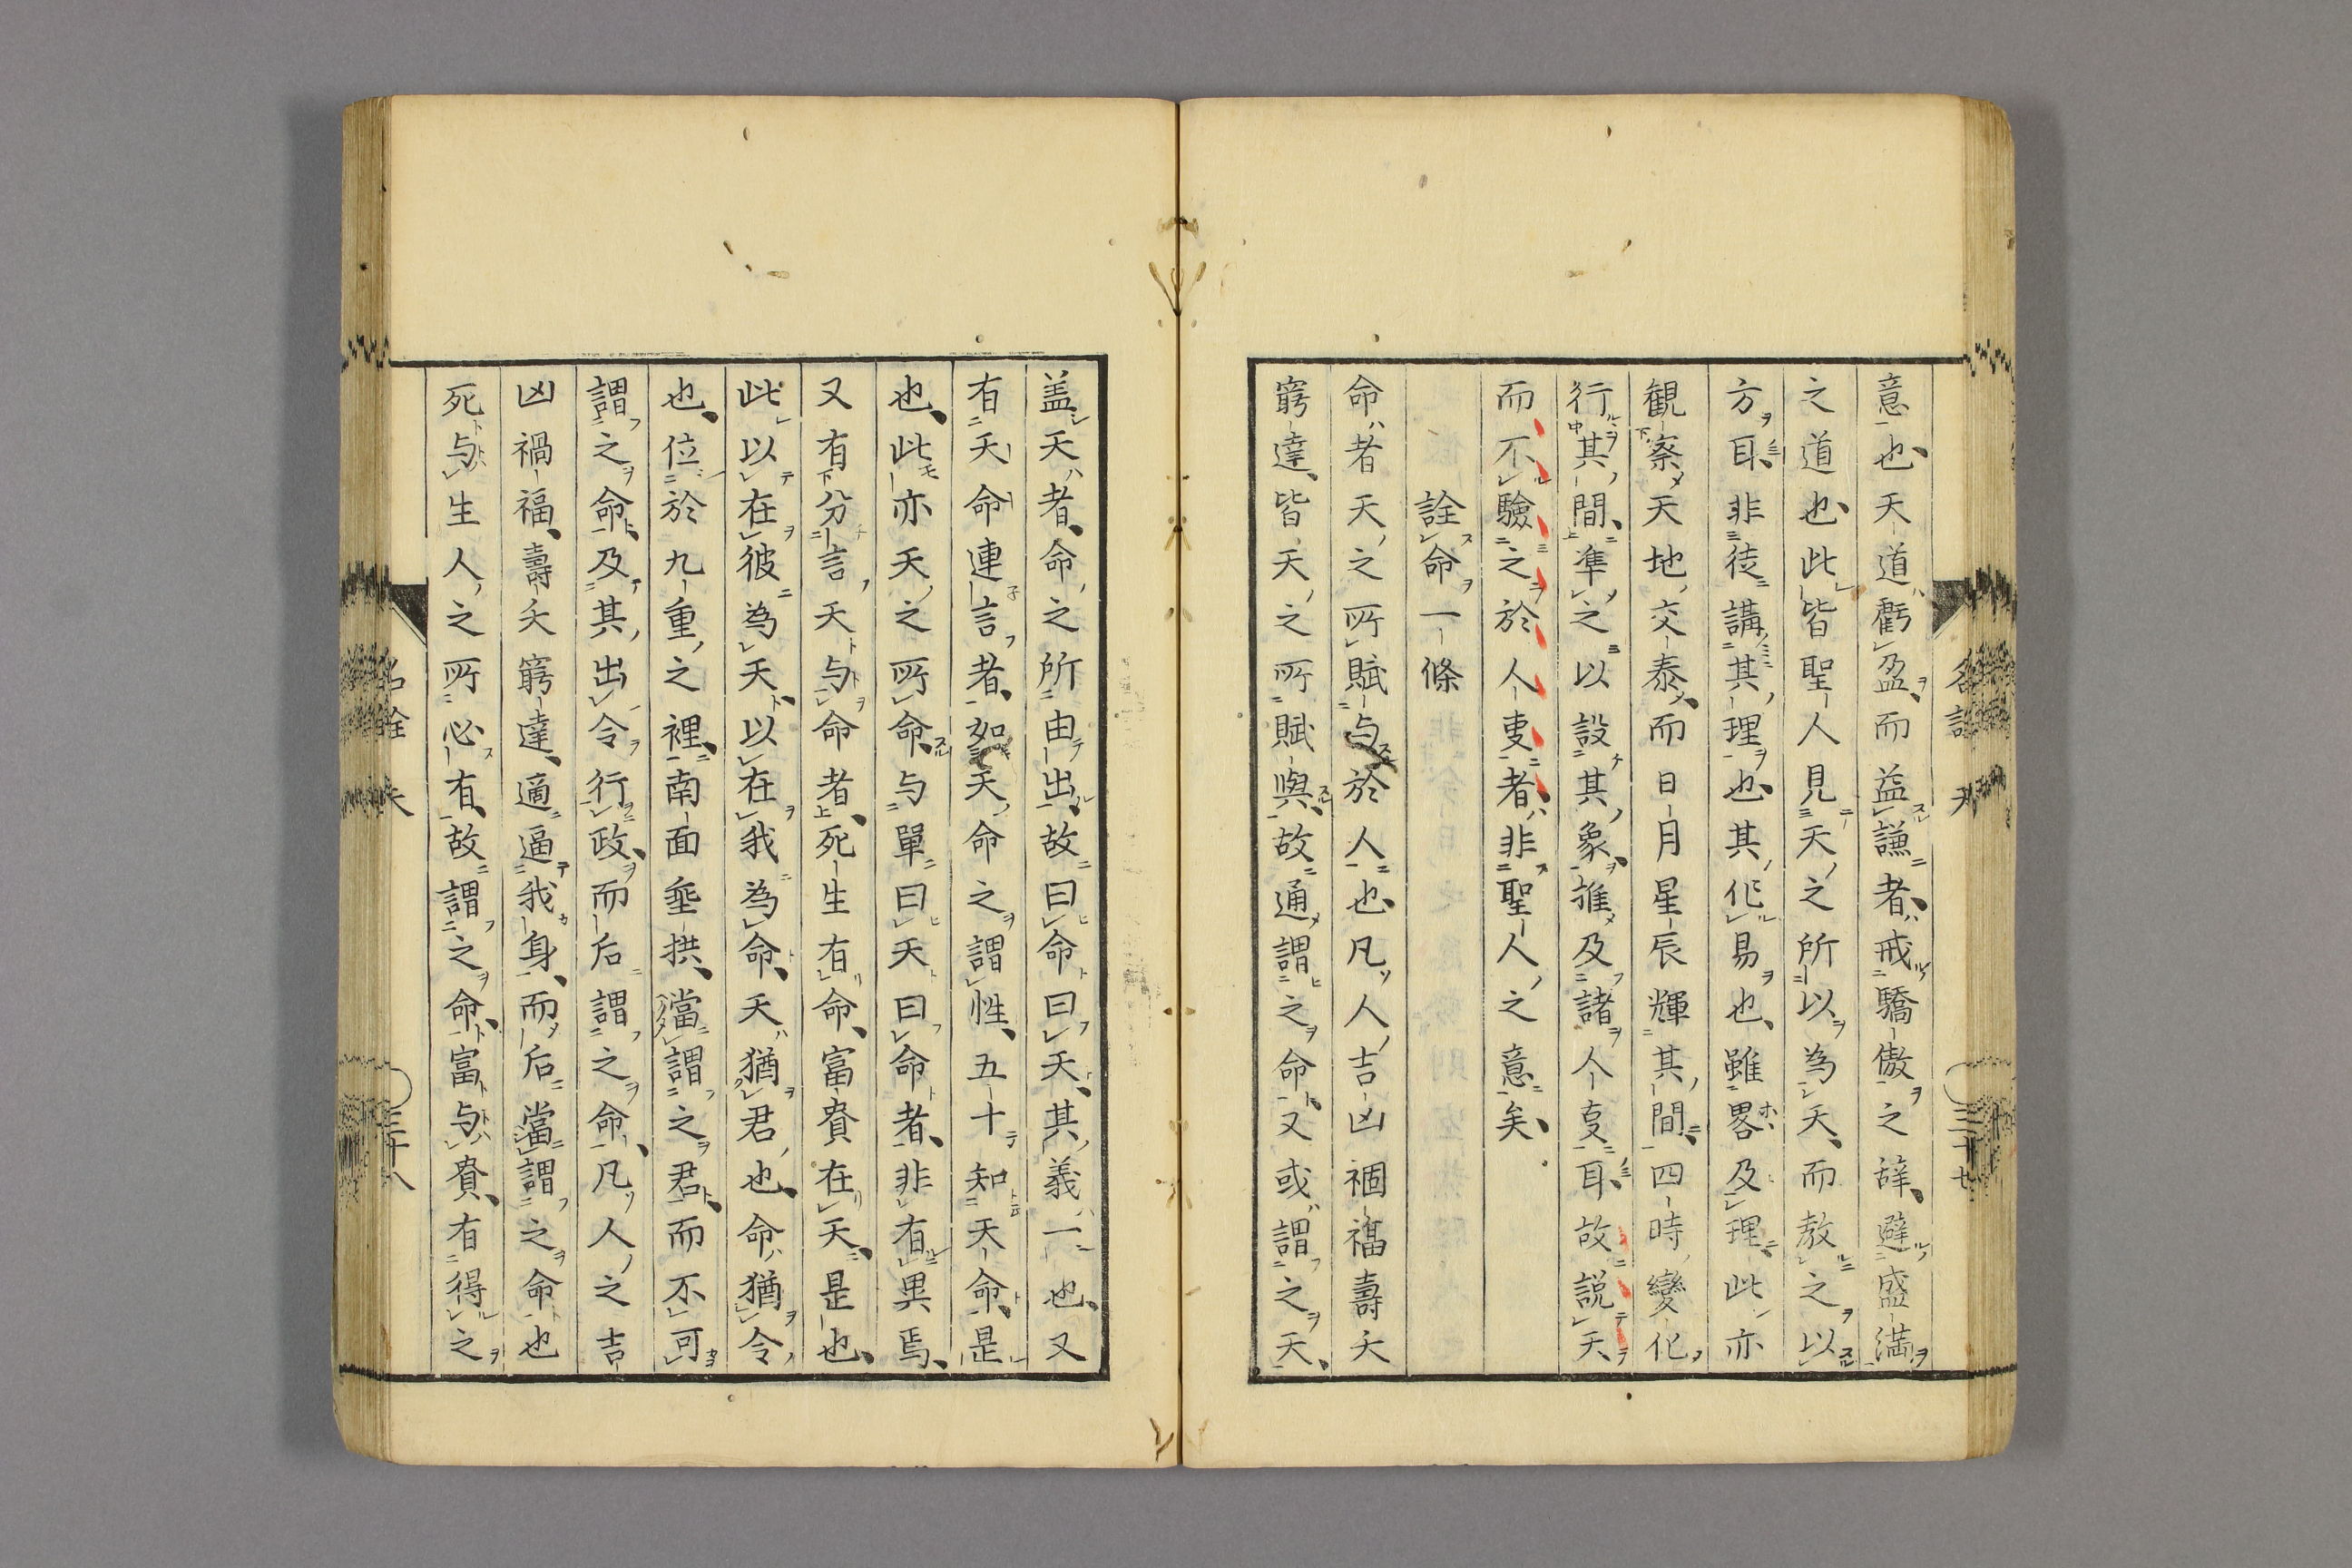 意也天道虧盈而益謙者戒驕傲之辞避盛満
之道也此皆聖人見天之所以為天而教之以
方耳非徒講其理也其化易也雖畧及理此亦
観察天地交泰而日月星辰輝其間四時變化
行其間準之以設其象推及諸人事耳故説天
而不驗之於人事者非聖人之意矣
詮命一條
命者天之所賦与於人也凡人吉凶禍福壽夭
窮達皆天之所賦與故通謂之命又或謂之天
盖天者命之所由出故曰命曰天其義一也又
有天命連言者如天命之謂性五十知天命是
也此亦天之所命与單曰天曰命者非有異焉
又有分言天与命者死生有命富貴在天是也
此以在彼為天以在我為命天猶君也命猶令
也位於九重之裡南面垂拱當謂之君而不可
謂之命及其出令行政而后謂之命凡人之吉
凶禍福壽夭窮達適逼我身而后當謂之命也
死与生人之所必有故謂之命富与貴有得之
名詮 天 三十七
名詮 天 三十八